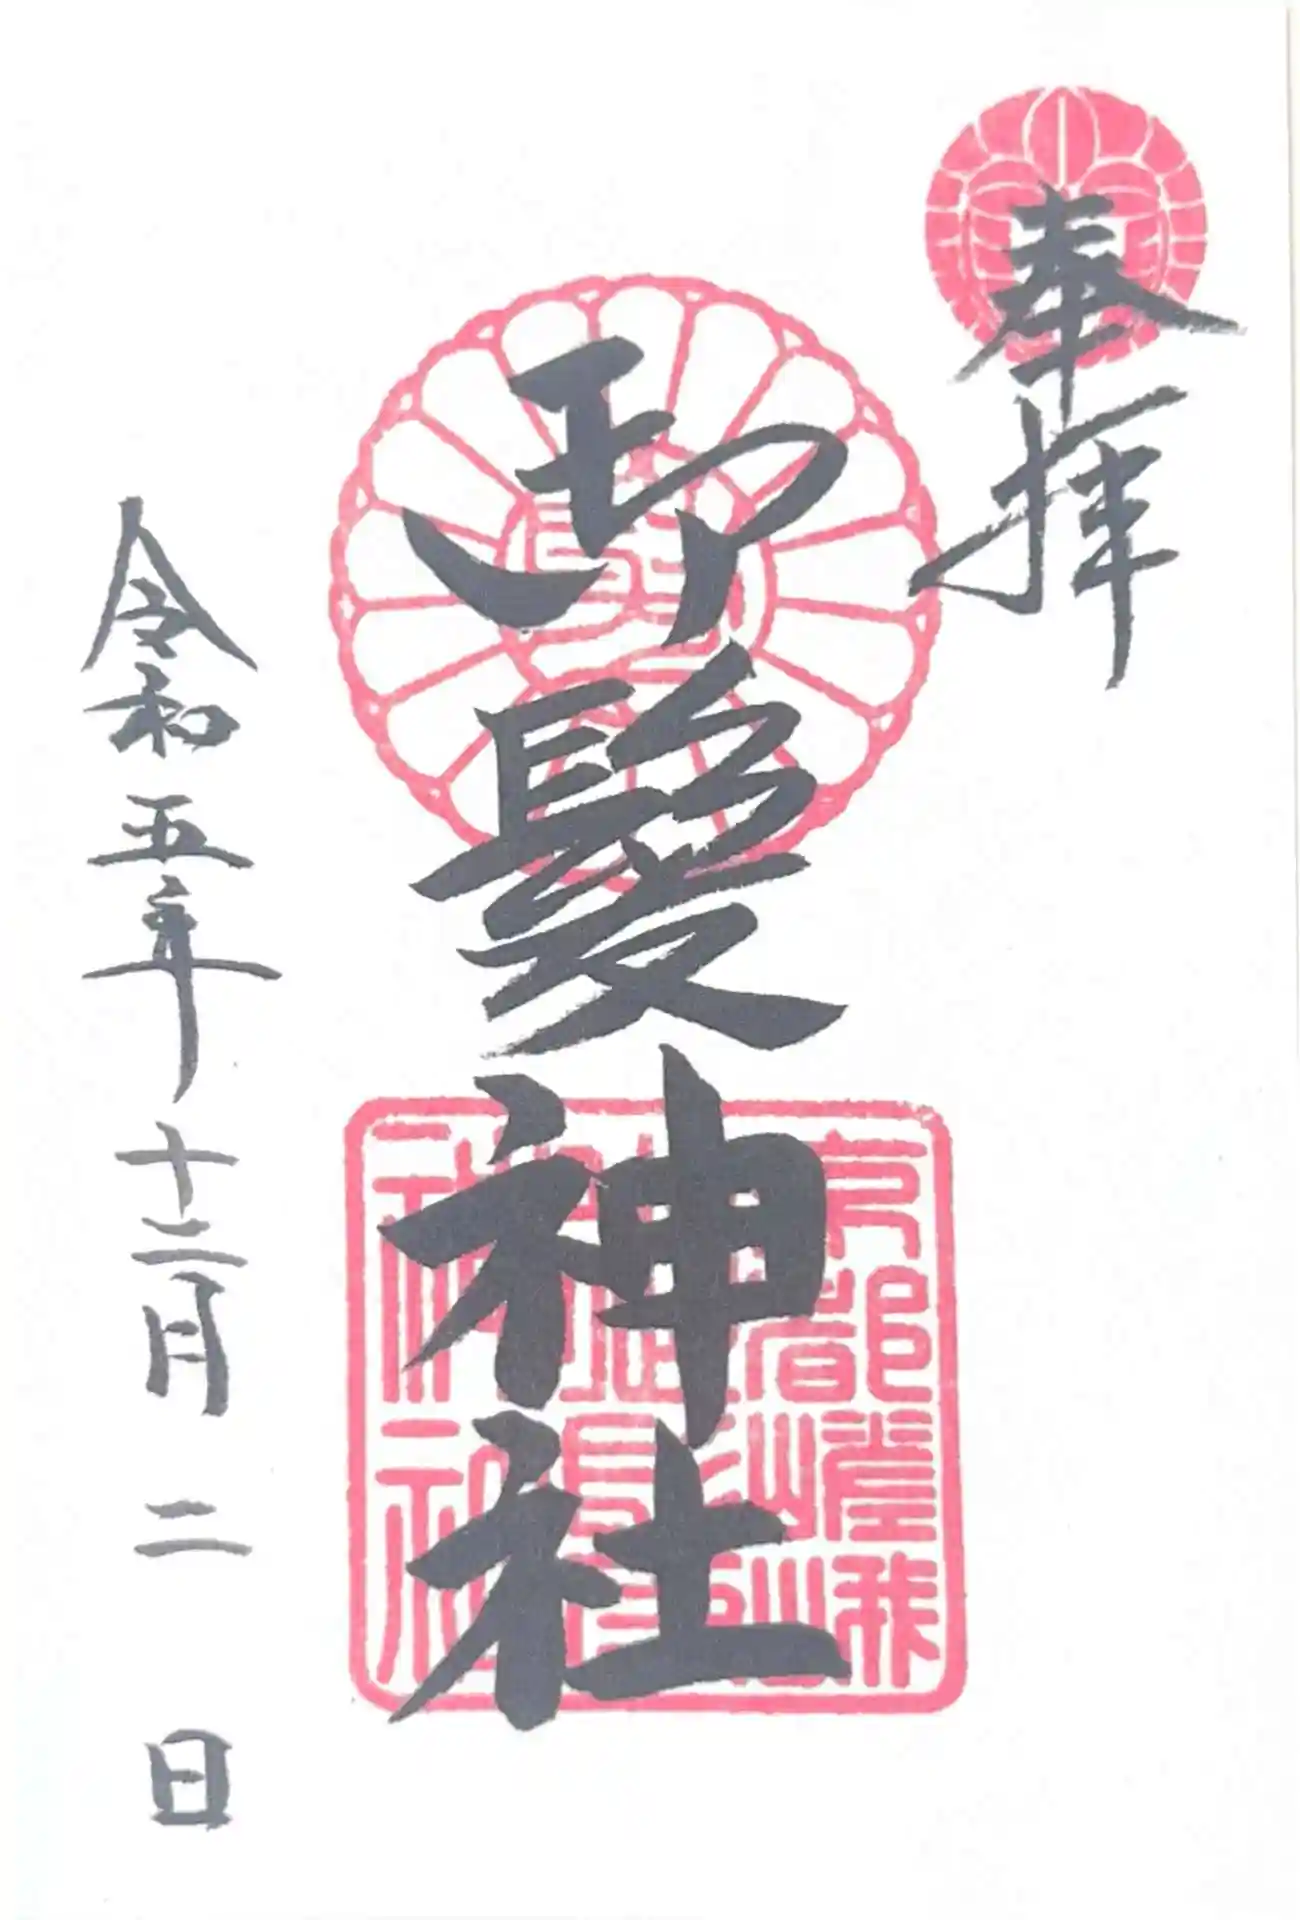 奉拝
御髪神社
京都嵯峨
嵐山
御髪
神社
令和五年十二月二日